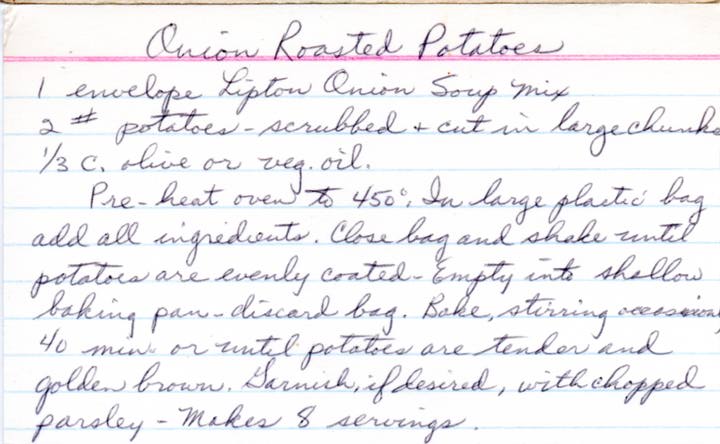 Onion Roasted Potatoes
1 envelope Lipton Onion Soup Mix
2 # potatoes - scrubbed + cut in large chunks
1/3 c. olive or veg. oil.
Pre-heat oven to 450°. In large plastic bag
add all ingredients. Close bag and shake until
potatoes are evenly coated - Empty into shallow
baking pan - discard bag. Bake, stirring occasional
40 min. or until potatoes are tender and
golden brown. Garnish, if desired, with chopped
parsley - Makes 8 servings.